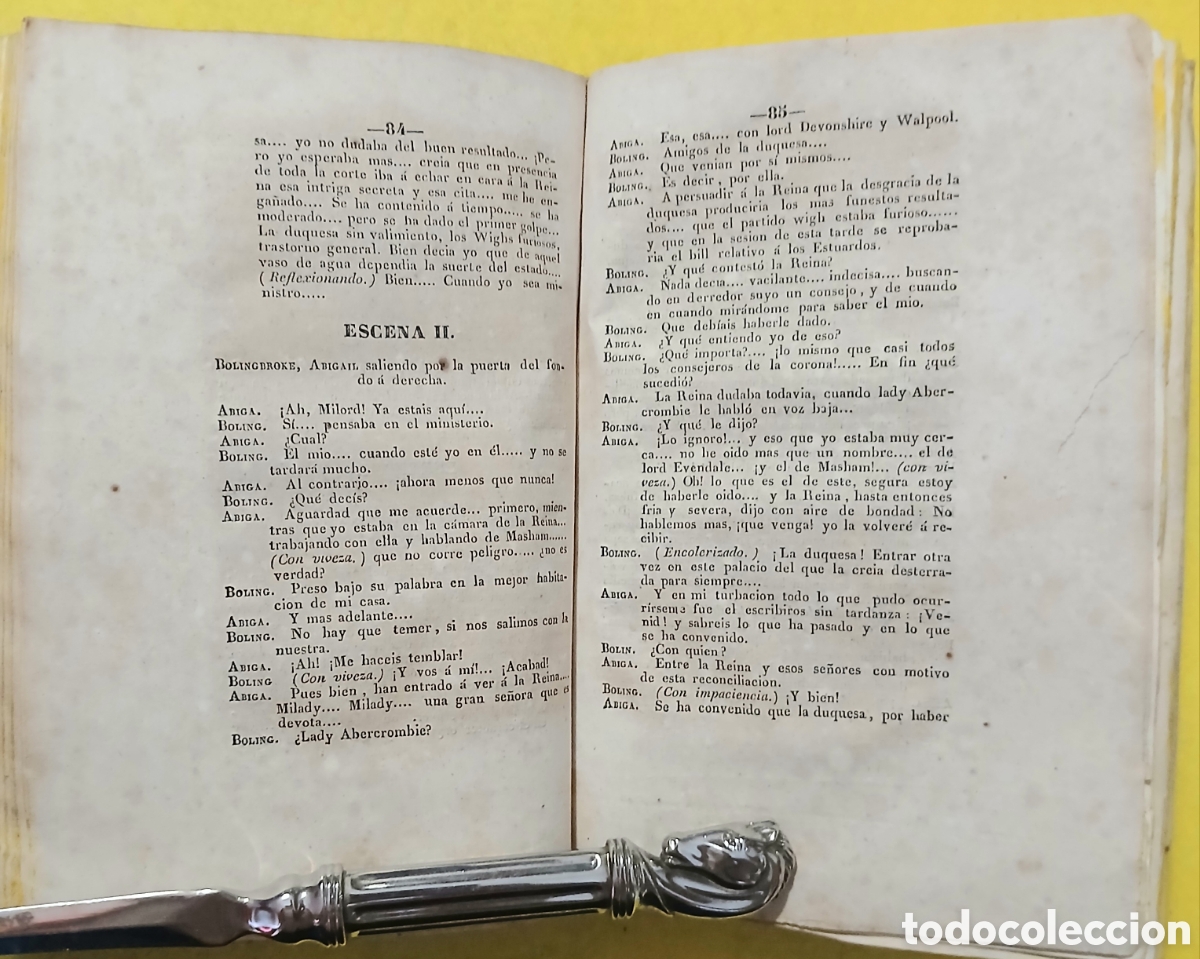 —84—
sa.... yo no dudaba del buen resultado... ¡Pe-
ro yo esperaba mas.... creia que en presencia
de toda la corte iba á echar en cara á la Rei-
na esa intriga secreta y esa cita..... me he en-
gañado.... Se ha contenido á tiempo..... se ha
moderado..... pero se ha dado el primer golpe...
La duquesa sin valimiento, los Wighs furiosos,
trastorno general. Bien decia yo que de aquel
vaso de agua dependia la suerte del estado....
(Reflexionando.) Bien..... Cuando yo sea mi-
nistro.....
ESCENA II.
BOLINGBROKE, ABIGAIL saliendo por la puerta del fon-
do á derecha.
ABIGA. ¡Ah, Milord! Ya estais aquí....
BOLING. Sí.... pensaba en el ministerio.
ABIGA. ¿Cual?
BOLING. El mio.... cuando esté yo en él..... y no se
tardará mucho.
ABIGA. Al contrario.... ¡ahora menos que nunca!
BOLING. ¿Qué decís?
ABIGA. Aguardad que me acuerde... primero, mien-
tras que yo estaba en la cámara de la Reina...
trabajando con ella y hablando de Masham......
(Con viveza.) que no corre peligro.... ¿no es
verdad?
BOLING. Preso bajo su palabra en la mejor habita-
cion de mi casa.
ABIGA. Y mas adelante....
BOLING. No hay que temer, si nos salimos con la
nuestra.
ABIGA. ¡Ah! ¡Me haceis temblar!
BOLING (Con viveza.) ¡Y vos á mí!... ¡Acabad!
ABIGA. Pues bien, han entrado á ver á la Reina....
Milady.... Milady.... una gran señora que es
devota....
BOLING. ¿Lady Abercrombie?
—85—
ABIGA. Esa, esa.... con lord Devonshire y Walpool.
BOLING. Amigos de la duquesa....
ABIGA. Que venian por sí mismos....
BOLING. Es decir, por ella.
ABIGA. A persuadir á la Reina que la desgracia de la
duquesa produciria los mas funestos resulta-
dos.... que el partido wigh estaba furioso......
y que en la sesion de esta tarde se reproba-
ria el bill relativo á los Estuardos.
BOLING. ¿Y qué contestó la Reina?
ABIGA. Nada decia.... vacilante.... indecisa.... buscan-
do en derredor suyo un consejo, y de cuando
en cuando mirándome para saber el mio.
BOLING. Que debíais haberle dado.
ABIGA. ¿Y qué entiendo yo de eso?
BOLING. ¿Qué importa?.... ¡lo mismo que casi todos
los consejeros de la corona!..... En fin ¿qué
sucedió?
ABIGA. La Reina dudaba todavia, cuando lady Aber-
crombie le habló en voz baja...
BOLING. ¿Y qué le dijo?
ABIGA. ¡Lo ignoro!... y eso que yo estaba muy cer-
ca.... no he oido mas que un nombre.... el de
lord Evendale... ¡y el de Masham!... (con vi-
veza.) Oh! lo que es el de este, segura estoy
de haberle oido.... y la Reina, hasta entonces
fria y severa, dijo con aire de bondad: No
hablemos mas, ¡que venga! yo la volveré á re-
cibir.
BOLING. (Encolerizado.) ¡La duquesa! Entrar otra
vez en este palacio del que la creia desterra-
da para siempre....
ABIGA. Y en mi turbacion todo lo que pudo ocur-
rírseme fue el escribiros sin tardanza: ¡Ve-
nid! y sabreis lo que ha pasado y en lo que
se ha convenido.
BOLIN. ¿Con quien?
ABIGA. Entre la Reina y esos señores con motivo
de esta reconciliacion.
BOLING. (Con impaciencia.) ¡Y bien!
ABIGA. Se ha convenido que la duquesa, por haber
todocoleccion